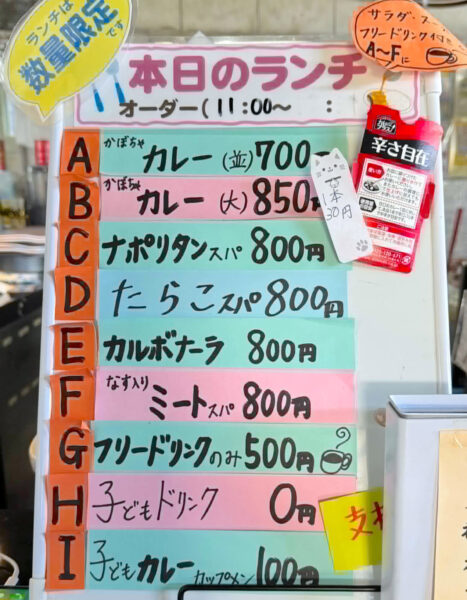 ランチは
数量限定
です
サラダ・ス
フリードリンク付き
A〜Fに
本日のランチ
オーダー(11:00〜 :
A かぼちゃ カレー(並)700
B かぼちゃ カレー(大)850円
C ナポリタンスパ 800円
D たらこスパ800円
E カルボナーラ 800円
F なす入り ミートスパ 800円
G フリードリンクのみ500円
H 子どもドリンク 0円
I 子どもカレー カップメン 100円
1本
30円
辛さ自在